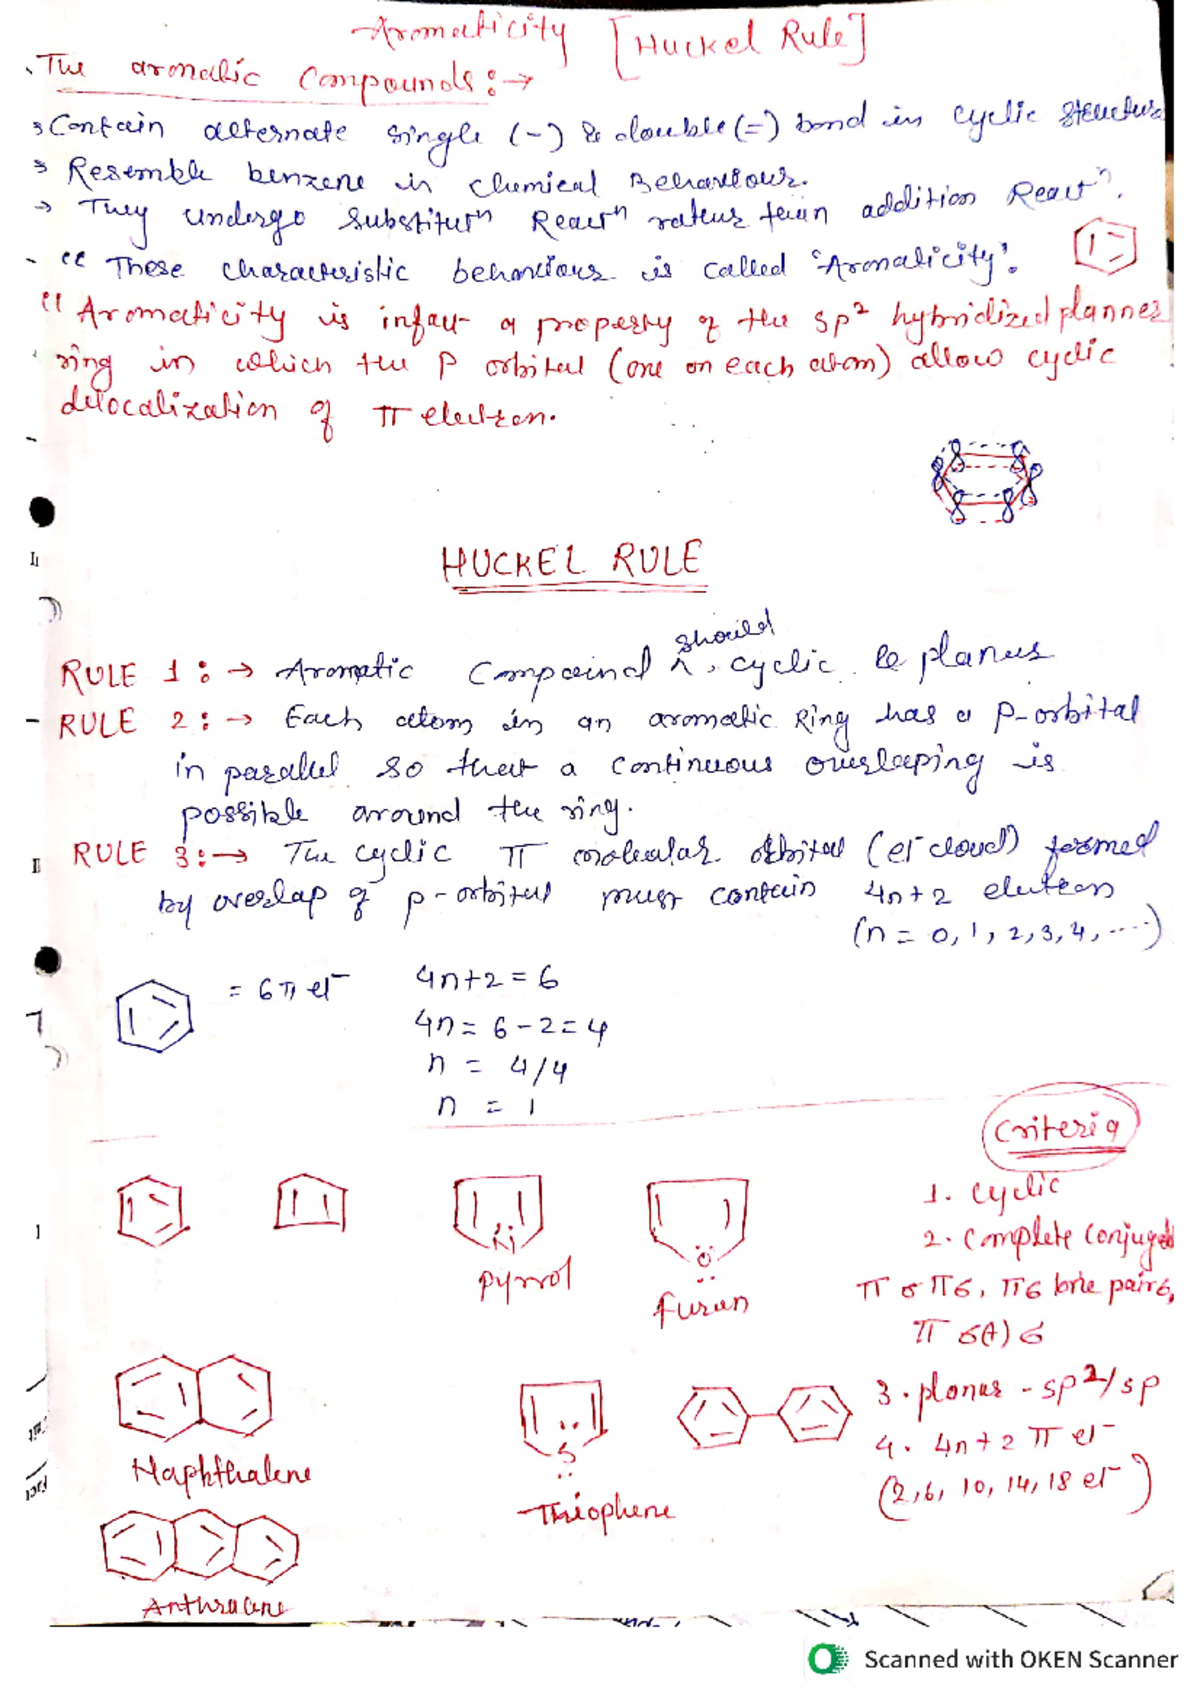 Aromaticity [Huckel Rule]
The aromatic Compounds:→
→ Contain alternate single (-) & double (=) bond in cyclic structure
→ Resemble benzene in chemical Behaviour.
→ They undergo Substitutⁿ Reactⁿ rather than addition Reactⁿ.
- " These characteristic behaviour is called 'Aromaticity'.
" Aromaticity is infact a property of the sp² hybridized planner
ring in which the p orbital (one on each atom) allow cyclic
delocalization of π electron.
HUCKEL RULE
should
RULE 1:→ Aromatic Compound ^, cyclic be planer
RULE 2:→ Each atom in an aromatic Ring has a p-orbital
in parallel so that a continuous overlapping is
possible around the ring.
RULE 3:→ The cyclic π molecular orbital (el⁻ cloud) formed
by overlap of p-orbital must contain 4n+2 electron
(n = 0, 1, 2, 3, 4, ....)
= 6π el⁻ 4n+2=6
4n = 6-2=4
n = 4/4
n = 1
Criteria
1. Cyclic
2. Complete Conjuged
π σ π σ, π σ lone pair σ,
π σ(+) σ
3. planer - sp²/sp
4. 4n+2 π el⁻
(2, 6, 10, 14, 18 el⁻)
N̈
pyrrol
Ö
furan
Naphthalene
S
Thiophene
Anthracene
Scanned with OKEN Scanner